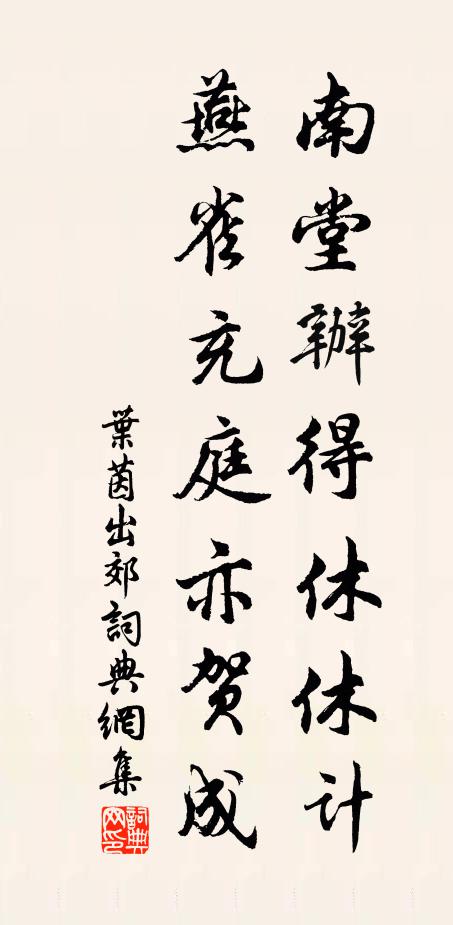 南堂辦得休休計
燕雀充庭亦賀成
葉茵出郊詞典網集
詞典
网印